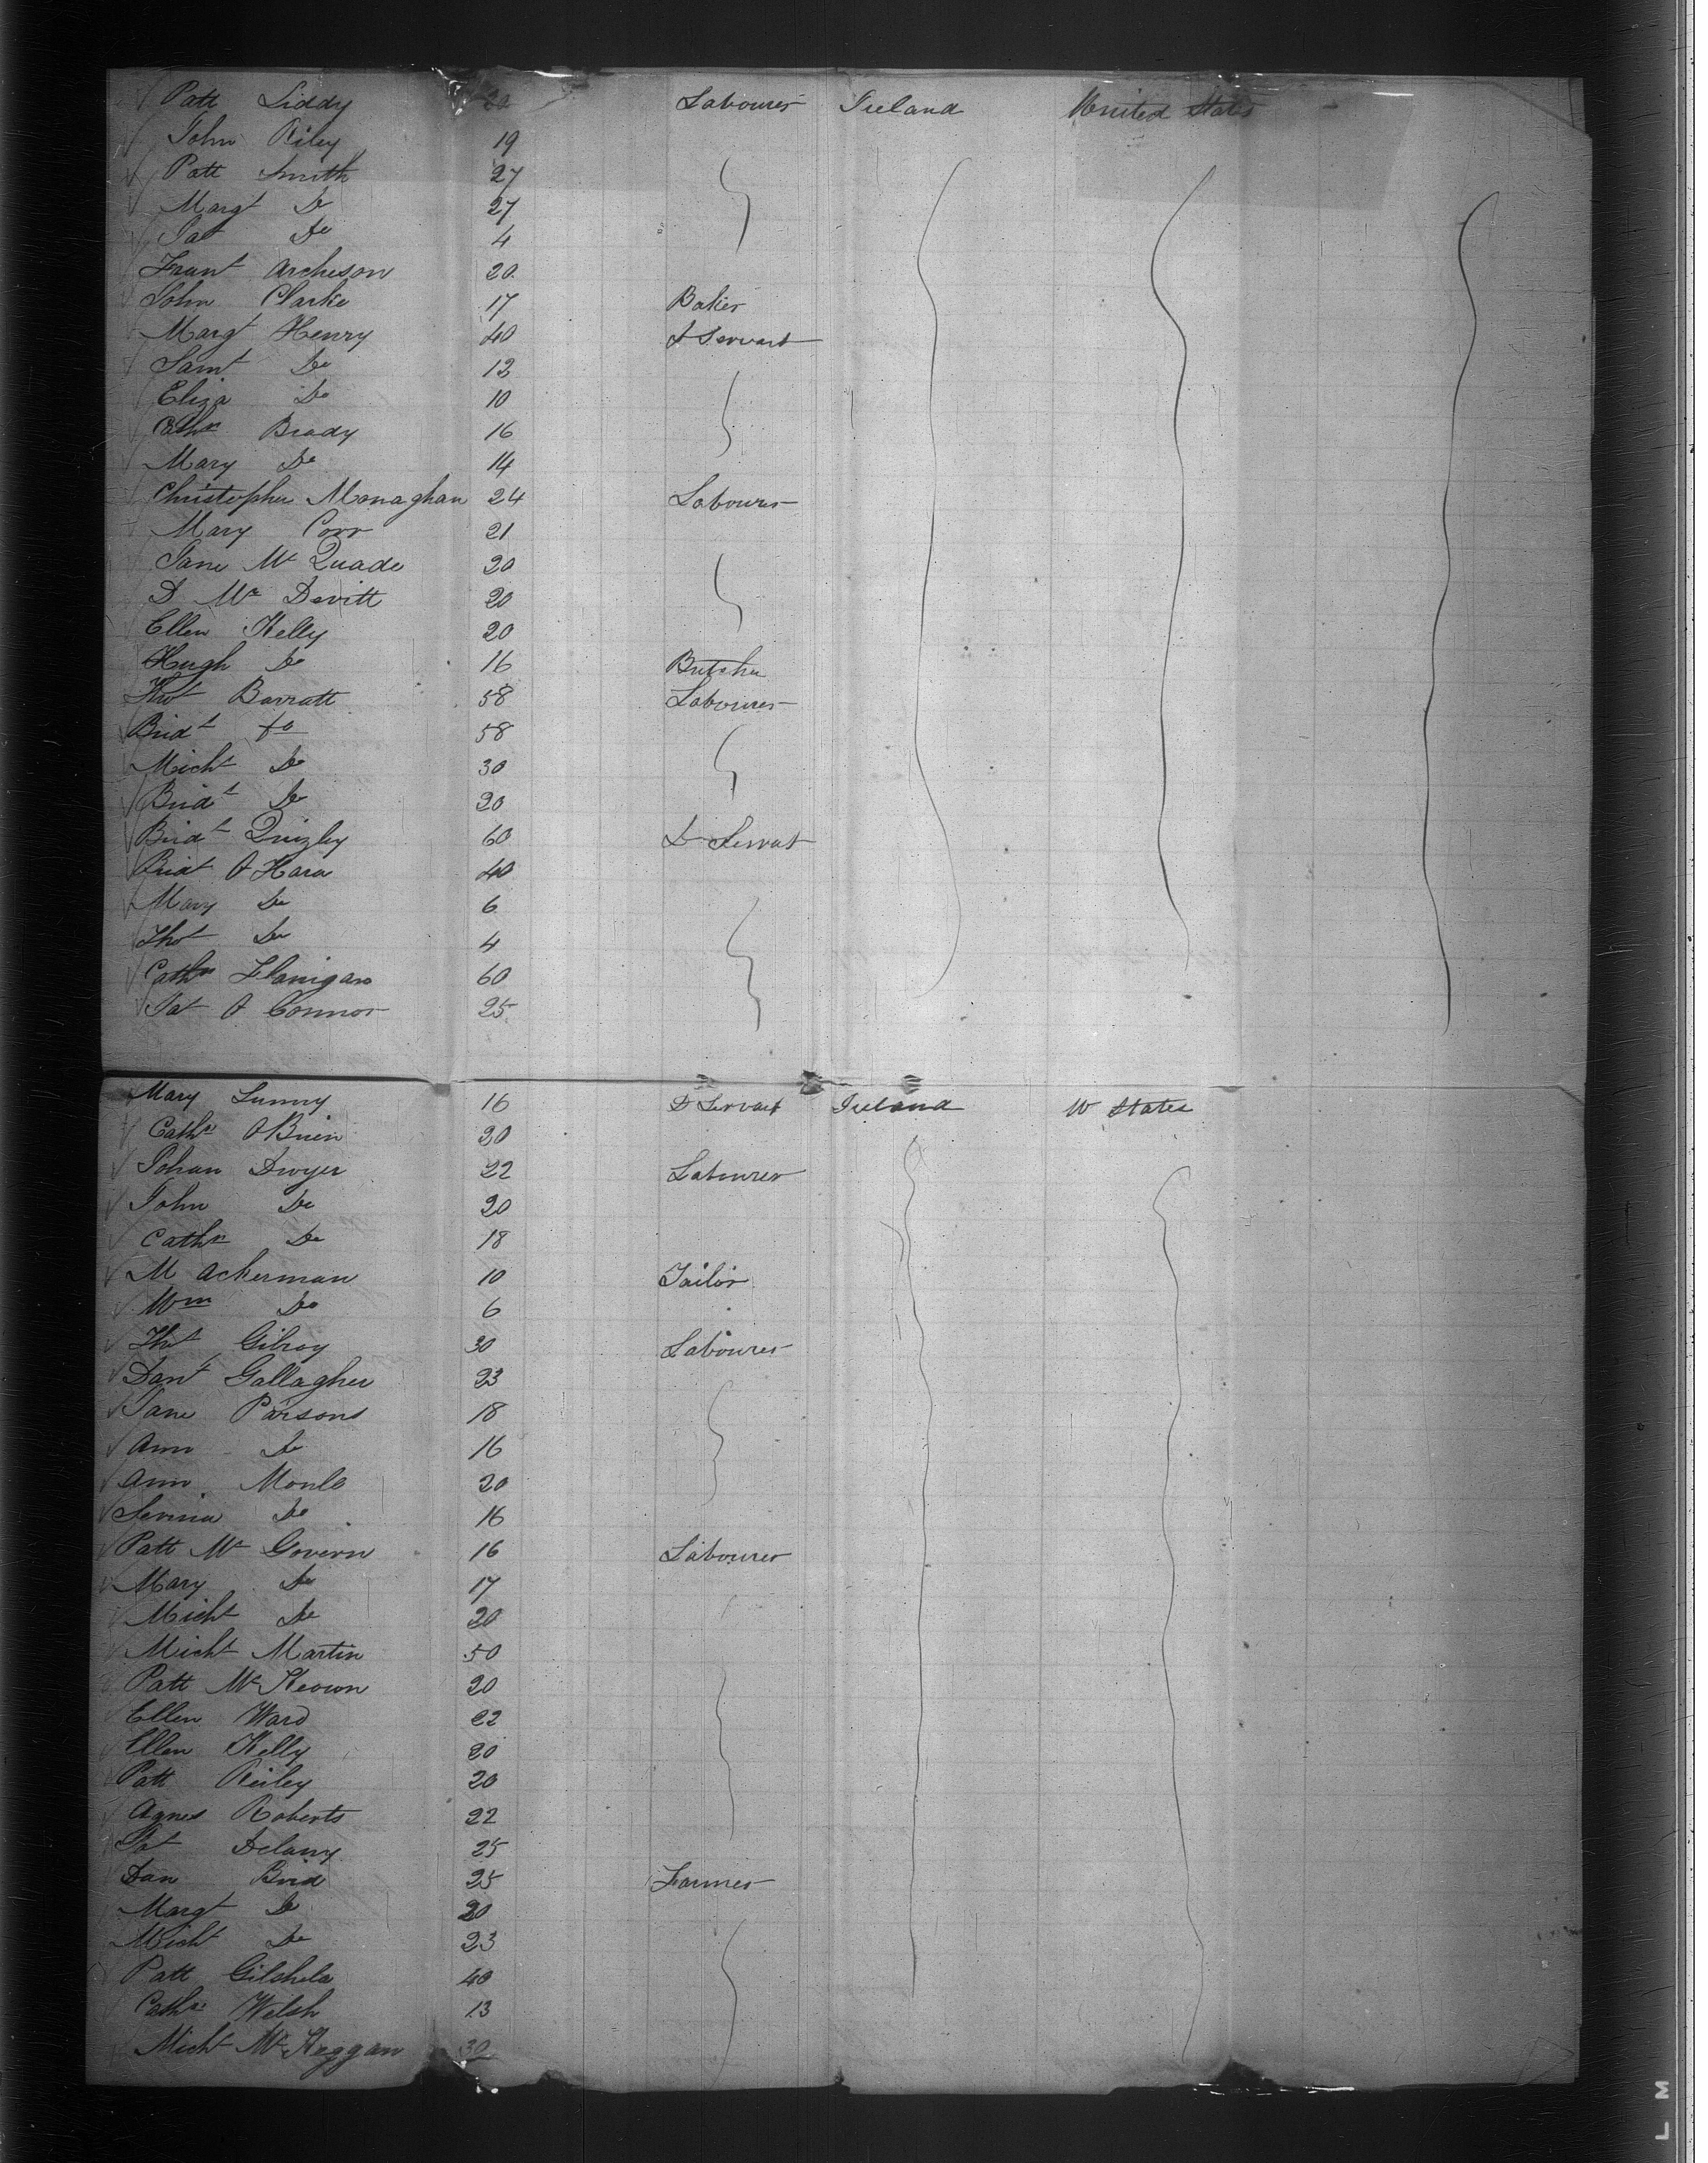 Patt Liddy 22 Labourer Ireland United States
John Riley 19
Patt Smith 27
Margt Do 27
Pat Do 4
Archeson 20
John Clarke 17 Baker
Margt Henry 40 D Servant
Saml Do 12
Eliza Do 10
Cathn Brady 16
Mary Do 14
Christopher Monaghan 24 Labourer
Mary Corr 21
Jane Mc Quade 20
D Mc Devitt 20
Ellen Kelly 20
Hugh Do 16 Butcher
Thos Barratt 58 Labourer
Bridt Do 58
Michl Do 30
Bridt Do 20
Bridt Quigley 60 D Servant
Bridt O Hara 40
Mary Do 6
Thos Do 4
Cathn Flanigan 60
Pat O Connor 25
Mary Lunny 16 D Servant Ireland U States
Cathn O Brien 20
Johan Dwyer 22 Labourer
John Do 20
Cathn Do 18
M Ackerman 10 Tailor
Wm Do 6
Thos Gilroy 30 Labourer
Danl Gallagher 23
Jane Parsons 18
Ann Do 16
Ann 20
Do 16
Patt Mc Govern 16 Labourer
Mary Do 17
Michl Do 20
Michl Martin 50
Patt McKeown 20
Ellen Ward 22
Ellen Kelly 20
Patt Reiley 20
Agnes Roberts 22
Pat Delany 25
Dan 25 Farmer
Margt Do 20
Michl Do 23
Patt 40
Cathn Welsh 13
Michl McKeggan 30
L M